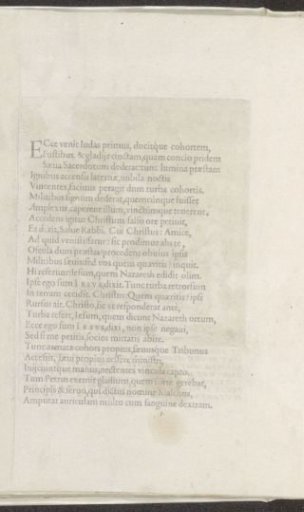 ECce venit Iudas primus, ducitque cohortem,
Fustibus & gladijs cinctam, quem concio pridem
Sæua Sacerdotum dederat: tunc lumina præstant
Ignibus accensis laternæ, nubila noctis
Vincentes, facinus peragit dum turba cohortis.
Militibus signum dederat, quemcunque fuisset
Amplexus, caperent illum, vinctumque tenerent,
Accedens igitur Christum falso ore petiuit,
Et dixit, Salue Rabbi. Cui Christus: Amice,
Ad quid venisti
Oscula dum præstas? procedens obuius ipse
Militibus seuis, ait quem quæritis? inquit.
Hi responderunt Iesum, quem Nazareth edidit olim.
Ipse ego sum IESVS, dixit. Tunc turba retrorsum
In terram cecidit. Christus: Quem quæritis? ipsi
Rursus ait. Christo, sic respondit ante,
Turba refert, Iesum, quem dicunt Nazareth ortum,
Ecce ego sum IESVS, dixi, non ipse negaui,
Sed si me petitis, socios mittatis abire.
Tunc armata cohors propius, sæuusque Tribunus
Accessit,
Inijciuntque manus, nectentes vincula capto.
Tum Petrus exeruit gladium, quem forte gerebat,
Principis & seruo, qui dictus nomine Malchus,
Amputat auriculam multo cum sanguine dextram.